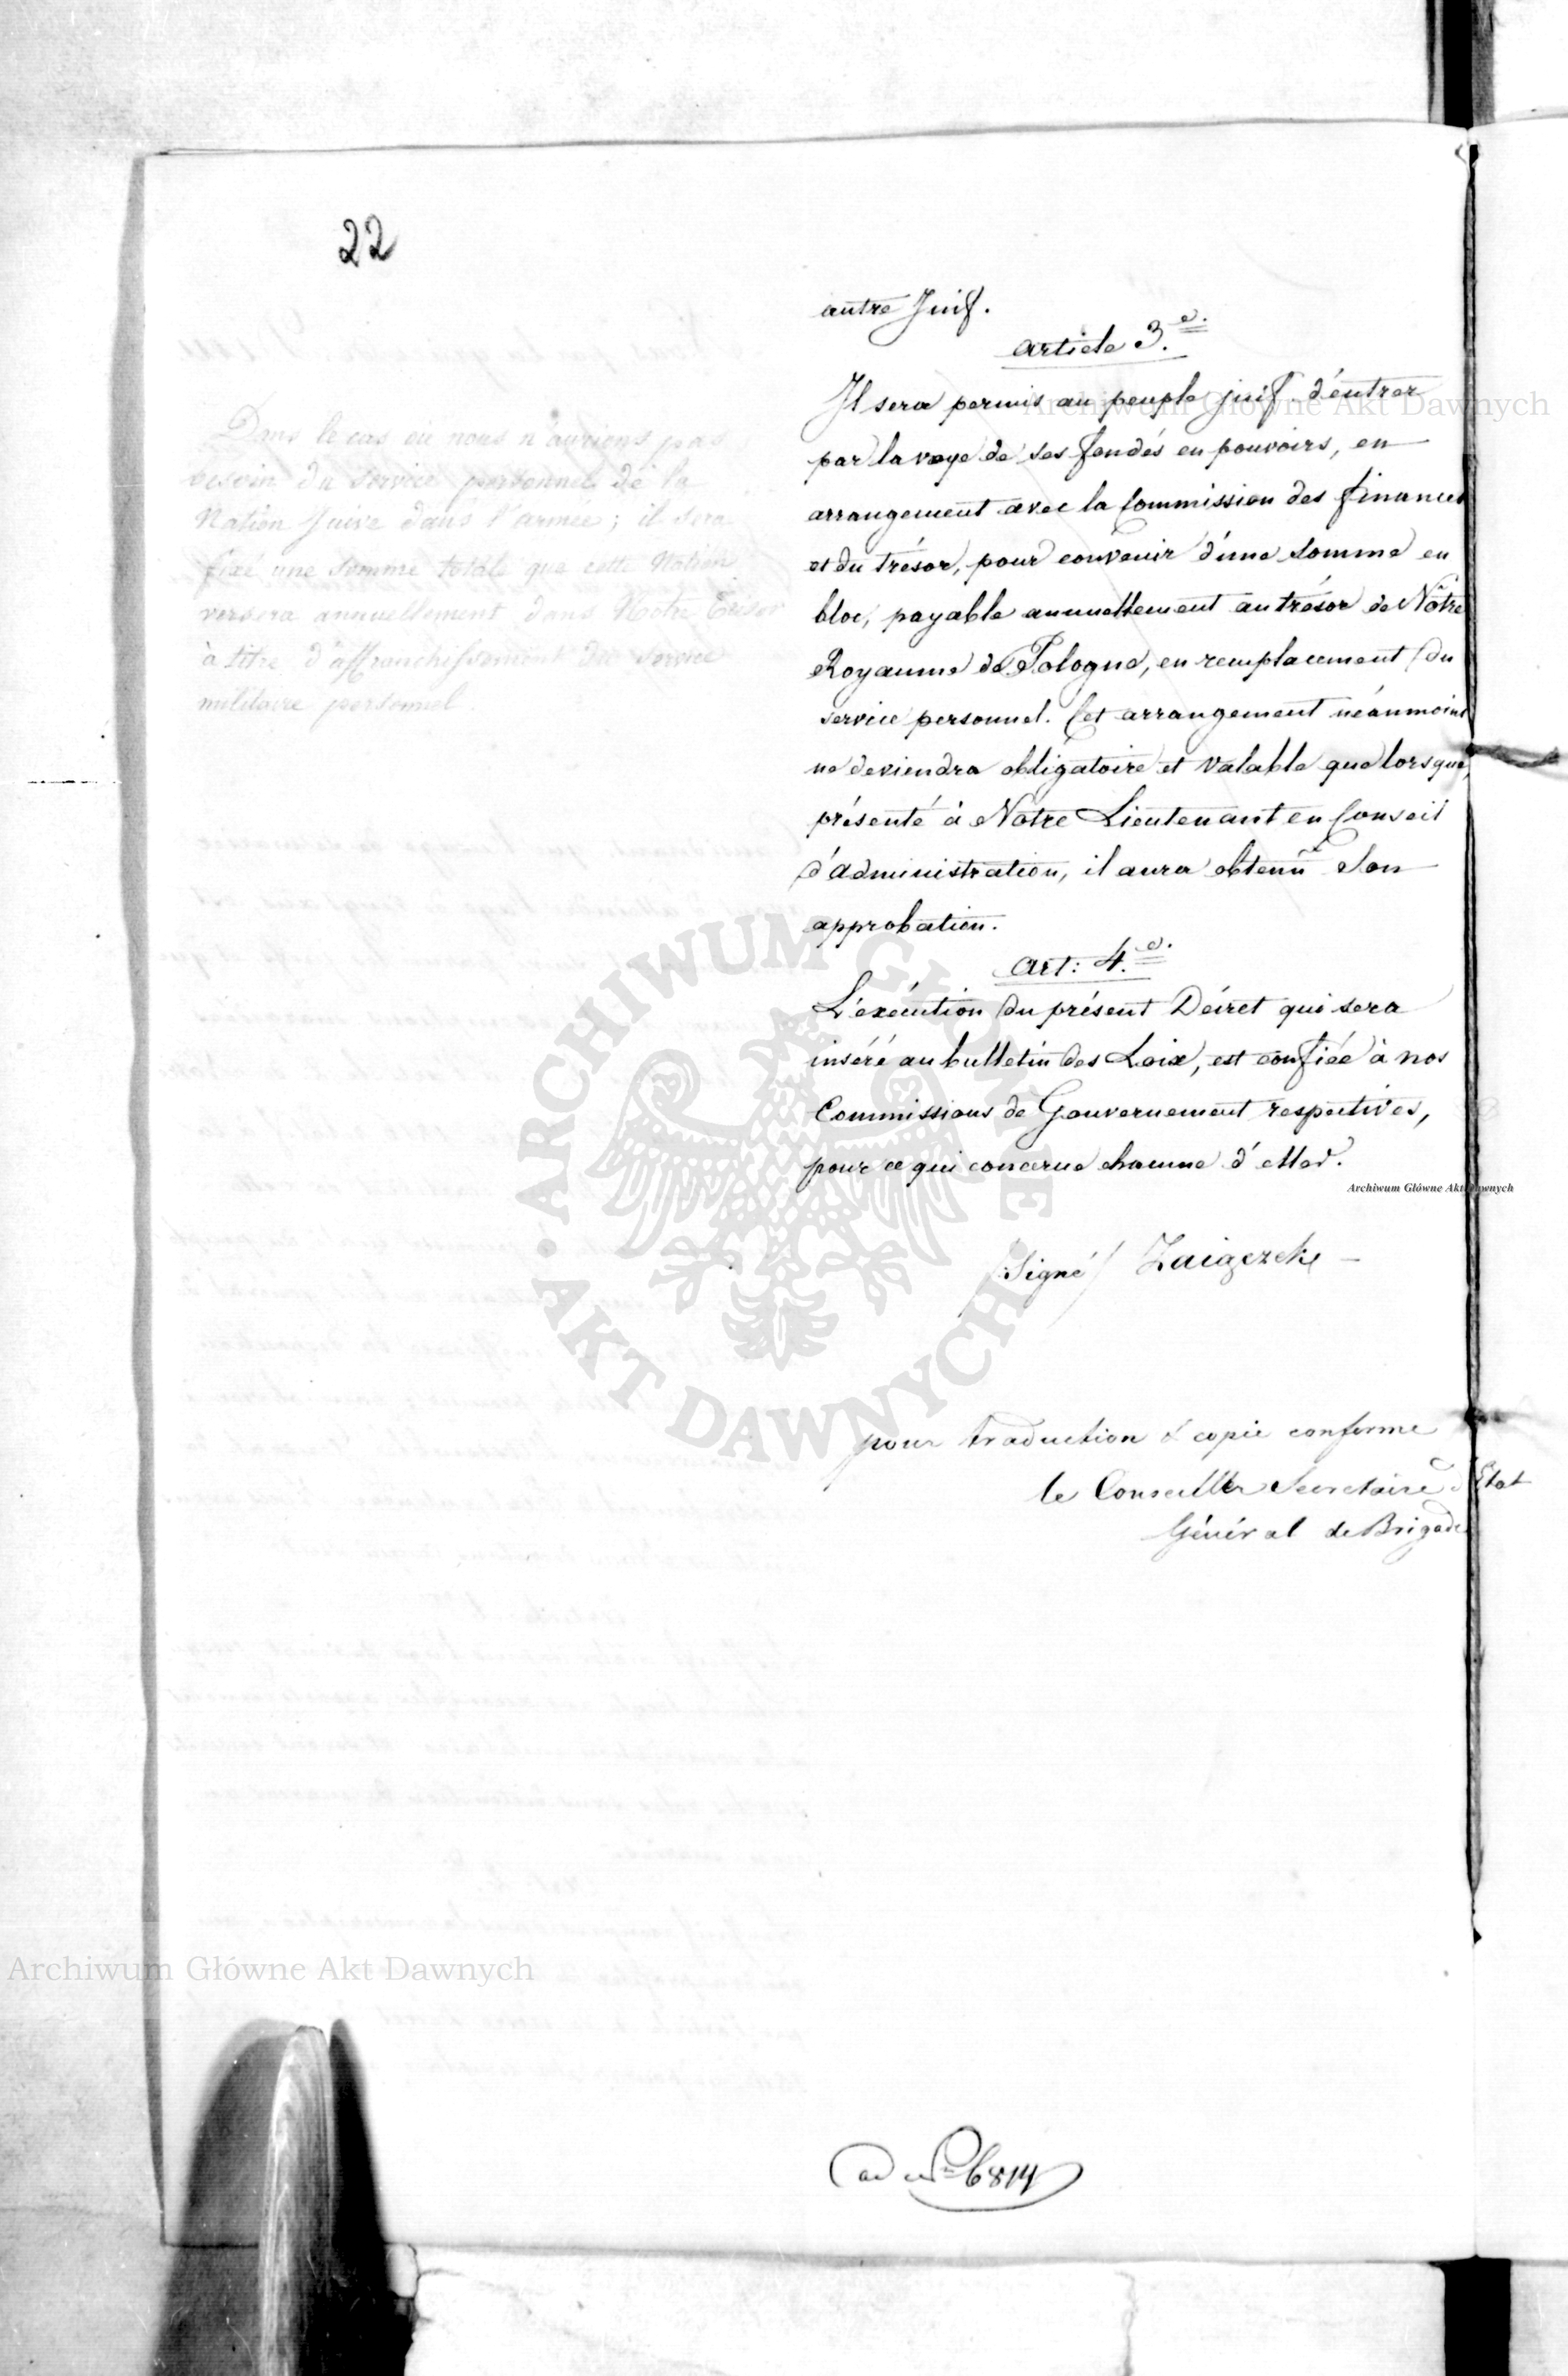 22
Dans le cas où nous n'aurions pas
besoin du service personnel de la
Nation Juive dans l'armée; il sera
fixé une somme totale que cette Nation
versera annuellement dans Notre Trésor
à titre d'affranchissement du service
militaire personnel.
autre Juif.
Article 3.e
Il sera permis au peuple juif d'entrer
par la voye de ses fondés en pouvoirs, en
arrangement avec la Commission des finances
et du trésor, pour convenir d'une somme en
bloc, payable annuellement au trésor de Nôtre
Royaume de Pologne, en remplacement du
service personnel. Cet arrangement néanmoins
ne deviendra obligatoire et valable que lorsque,
présenté à Notre Lieutenant en Conseil
d'administration, il aura obtenu Son
approbation.
Art: 4.e
L'exécution du présent Décret qui sera
inséré au bulletin des Loix, est confiée à nos
Commissions de Gouvernement respectives,
pour ce qui concerne chacune d'elles.
/Signé/ Zaiączek
pour traduction & copie conforme
le Conseiller Secretaire d'Etat
Général de Brigade
ad No 6814
Archiwum Główne Akt Dawnych
Archiwum Główne Akt Dawnych
Archiwum Główne Akt Dawnych
ARCHIWUM GŁÓWNE AKT DAWNYCH